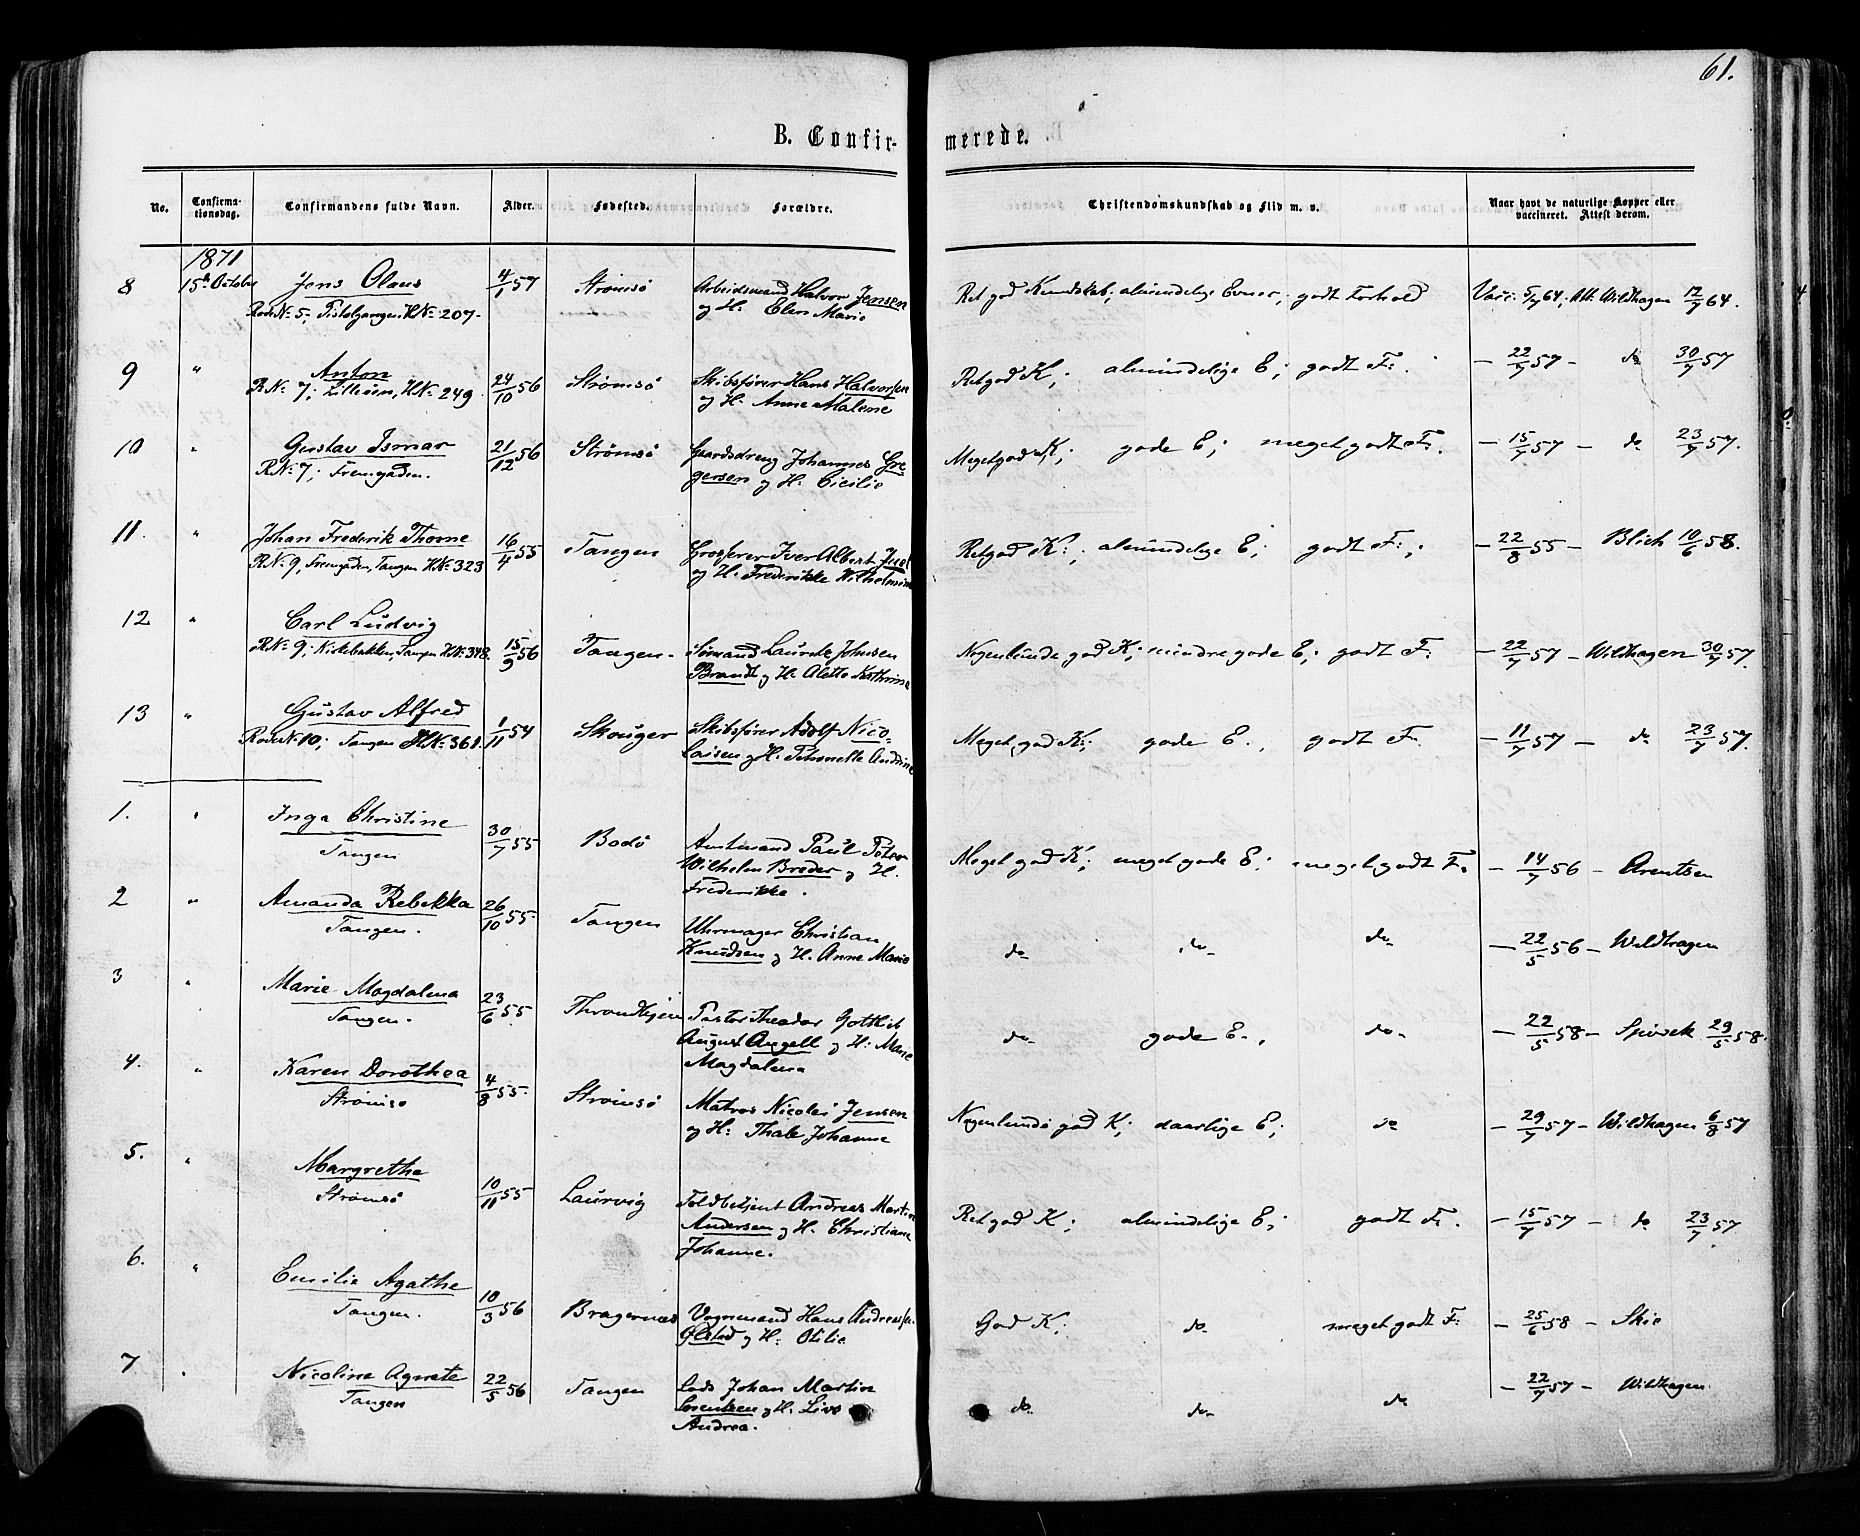 61.
B. Confirmerede.
No. Confirmationsdag. Confirmandens fulde Navn. Alder. Fødested. Forældre. Christendomskundskab og Flid m. v. Naar havt de naturlige Kopper eller vaccineret. Attest derom.
1871
8 15de October Jens Olaus 4/1 57 Strømsø Arbeidsmand Halvor Jensen Ret god Kundskab; almindelige Evner; godt Forhold Vacc: 5/7 64; Att: Wildhagen 12/7 64.
Rode No 5; Pistolgangen HNo 207. og H: Elen Marie
9 " Anton 24/10 56 Strømsø Skibsfører Hans Halvorsen Ret god K; almindelige E; godt F: — 22/7 57 — do 30/7 57
RNo 7; Lilleøen, HNo 249. og H: Anne Malene
10 " Gustav Ismar 21/12 56 Strømsø Gaardsdreng Johannes Gre- Meget god K; gode E; meget godt F. — 15/7 57 — do 23/7 57.
RNo 7; Fremgaden. gersen og H: Cicilie
11. " Johan Frederik Thorne 16/4 55 Tangen Grosserer Iver Albert Juel Ret god K:; almindelige E; godt F:; — 22/8 55 — Blich 10/6 58.
RNo 9, Fremgaden, Tangen HNo 323 og H: Frederikke Wilhelmine
12 " Carl Ludvig 15/9 56 Tangen. Sømand Laurits Johnsen Nogenlunde god K; mindre gode E; godt F: — 22/7 57 — Wildhagen 30/7 57.
RNo 9; Kirkebakken, Tangen HNo 348. Brandt og H: Alette Kathrine
13 " Gustav Alfred 1/11 54 Skouger Skibsfører Adolf Nico- Meget god K; gode E., godt F. — 11/7 57 — do 23/7 57.
Rode No 10; Tangen HNo 361. laisen og H: Petronelle Andrine
1. " Inga Christine 30/7 55 Bodø Amtmand Paul Peter Meget god K; meget gode E; meget godt F: — 14/7 56 — Arentsen
Tangen Wilhelm Breder og H.
Frederikke.
2 " Amanda Rebekka 26/10 55 Tangen Uhrmager Christian do do do — 22/5 56 — Wildhagen
Tangen. Knudsen og H. Anne Marie
3 " Marie Magdalena 23/6 55 Throndhjem Pastor Theodor Gottlieb do gode E., do — 22/5 58 — 29/5 58.
Tangen. August Angell og H: Marie
Magdalena
4. " Karen Dorothea 4/8 55. Strømsø Matros Nicolai Jensen Nogenlunde god K; daarlige E; do — 29/7 57 — Wildhagen 6/8 57
Strømsø og H: Thale Johanne
5. " Margrethe 10/11 55 Laurvig Toldbetjent Andreas Martin Ret god K; almindelige E; godt F. — 15/7 57 — do 23/7 57.
Strømsø Andersen og H: Christiane
Johanne.
6. " Emilie Agathe 10/3 56 Bragernæs Vognmand Hans Andreas God K; do meget godt F: — 25/6 58 — Skie
Tangen. Ølstad og H: Otilie
7 " Nicoline Agnete 22/5 56 Tangen Lods Johan Martin do do do — 22/7 57 — Wildhagen.
Tangen Sørensen og H: Live
Andrea.